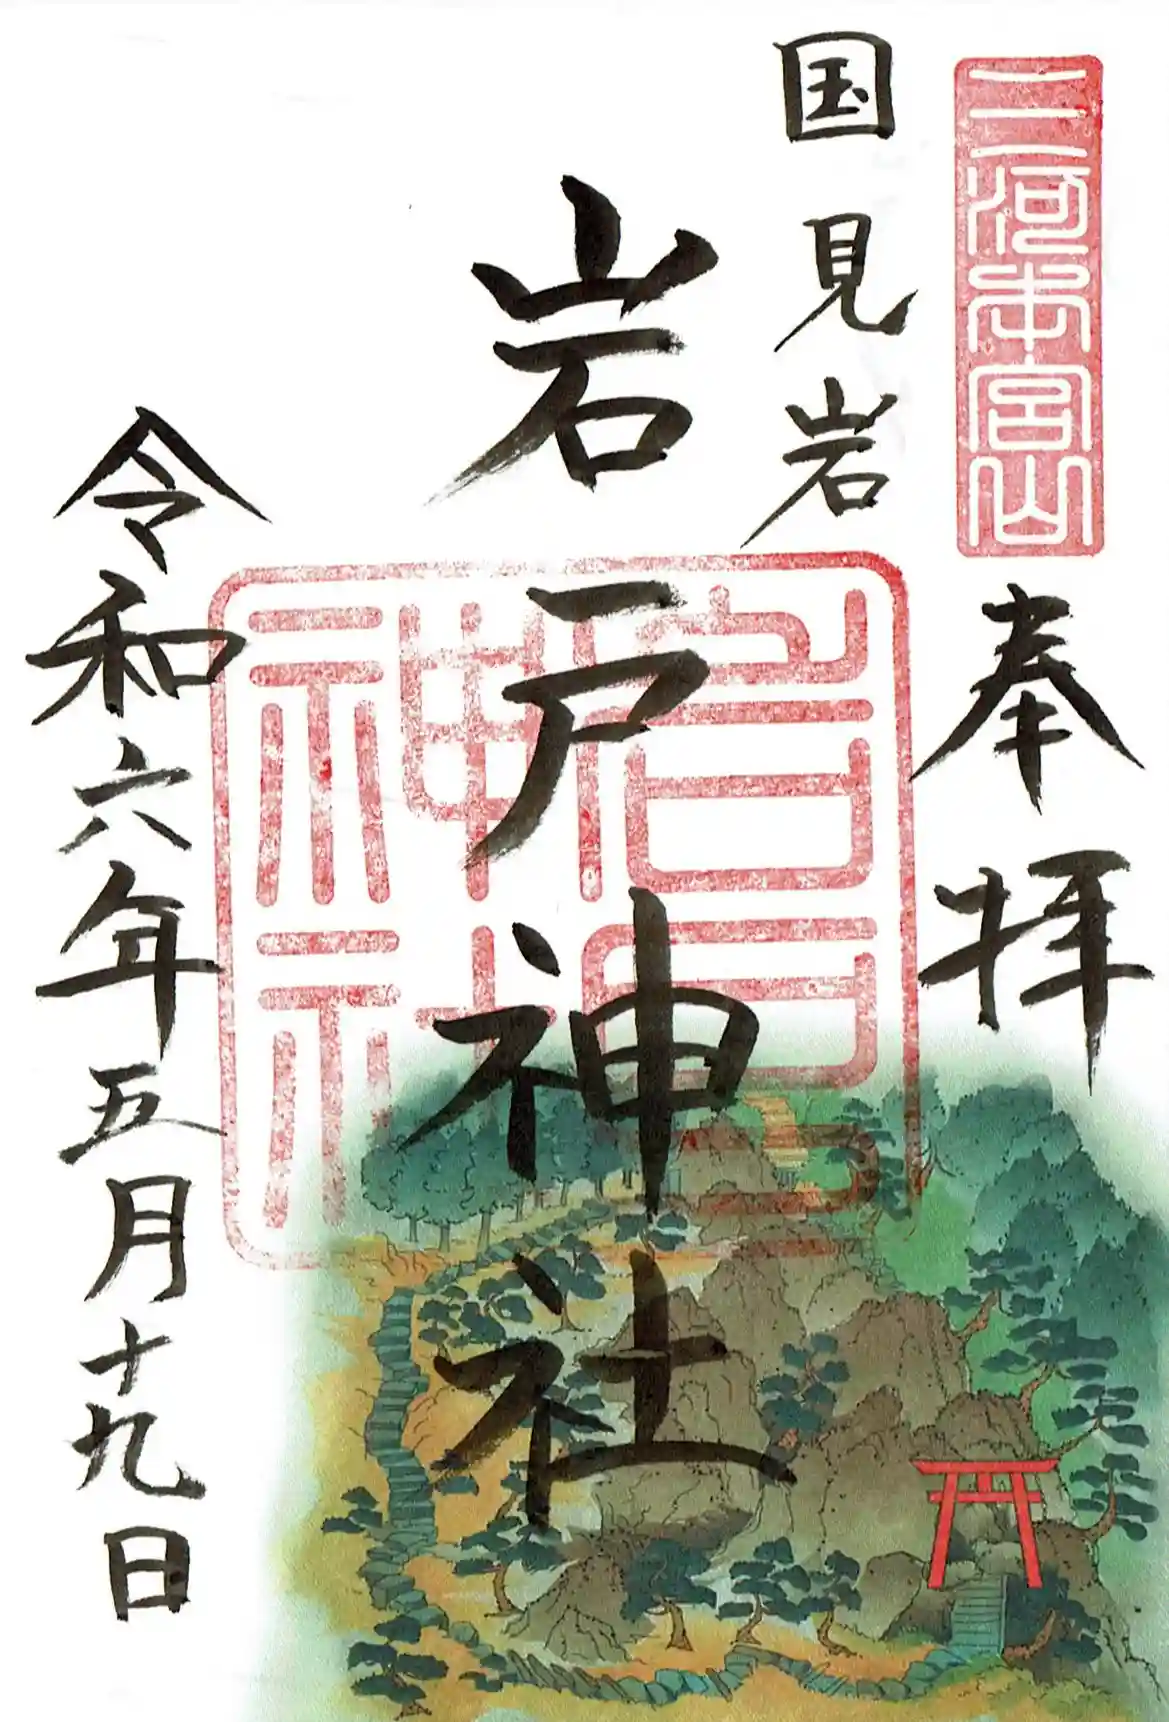 三河本宮山
奉拝
国見岩
岩戸神社
岩戸
神社
令和六年五月十九日